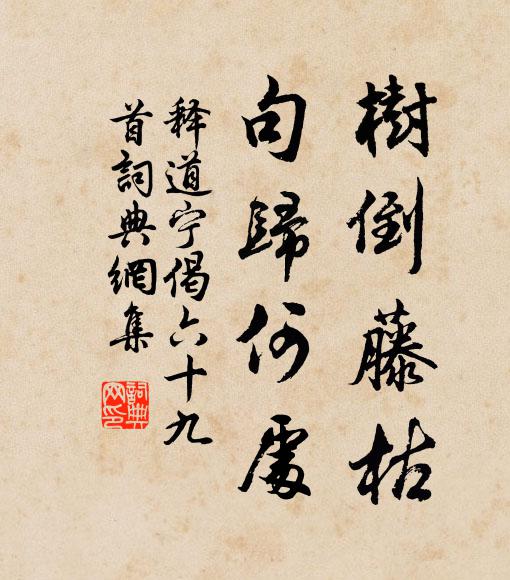 樹倒藤枯
句歸何處
釋道宁偈六十九
首詞典網集
詞典
网印